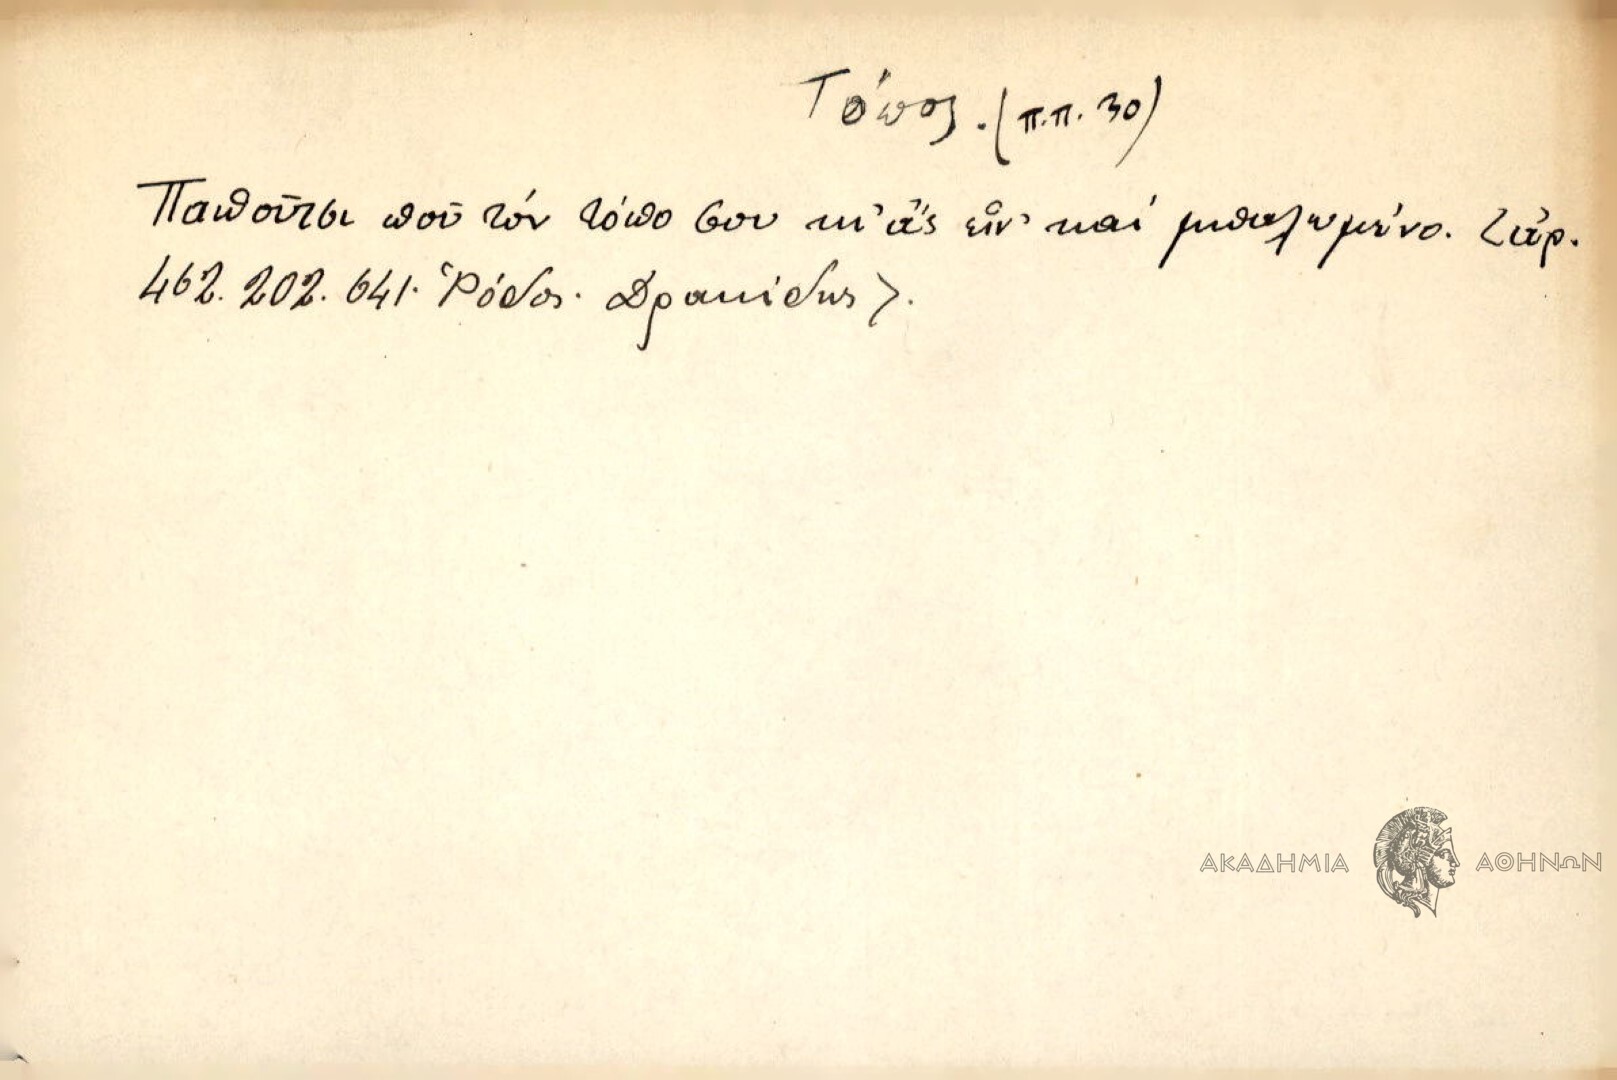 Τόπος. (π.π. 30)
Παποῦτσι ποῦ τόν τόπο σου κι' ἄς εἶν' καί μπαλωμένο. <ἀρ.
462. 202. 641. Ῥόδος. Δρακίδης>.
ΑΚΑΔΗΜΙΑ ΑΘΗΝΩΝ